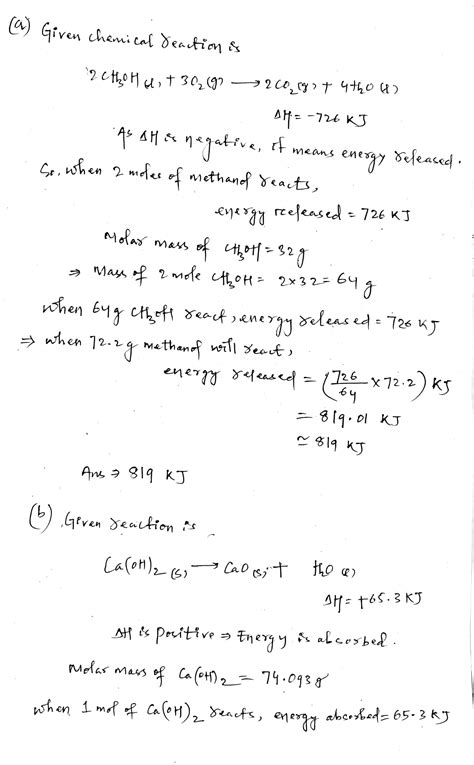 (a) Given chemical reaction is
2CH3OH (l) + 3O2 (g) → 2CO2 (g) + 4H2O (l)
ΔH = -726 KJ
As ΔH is negative, it means energy released.
So, when 2 moles of methanol reacts,
energy rceleased = 726 KJ
Molar mass of CH3OH = 32 g
⇒ Mass of 2 mole CH3OH = 2×32 = 64 g
when 64 g CH3OH react, energy released = 726 KJ
⇒ when 72.2 g methanol will react,
energy released = (726/64 × 72.2) KJ
= 819.01 KJ
≃ 819 KJ
Ans → 819 KJ
(b) Given reaction is
Ca(OH)2 (s) → CaO (s) + H2O (l)
ΔH = +65.3 KJ
ΔH is positive ⇒ Energy is abcsorbed.
Molar mass of Ca(OH)2 = 74.093 g
when 1 mol of Ca(OH)2 reacts, energy abcsorbed = 65.3 KJ